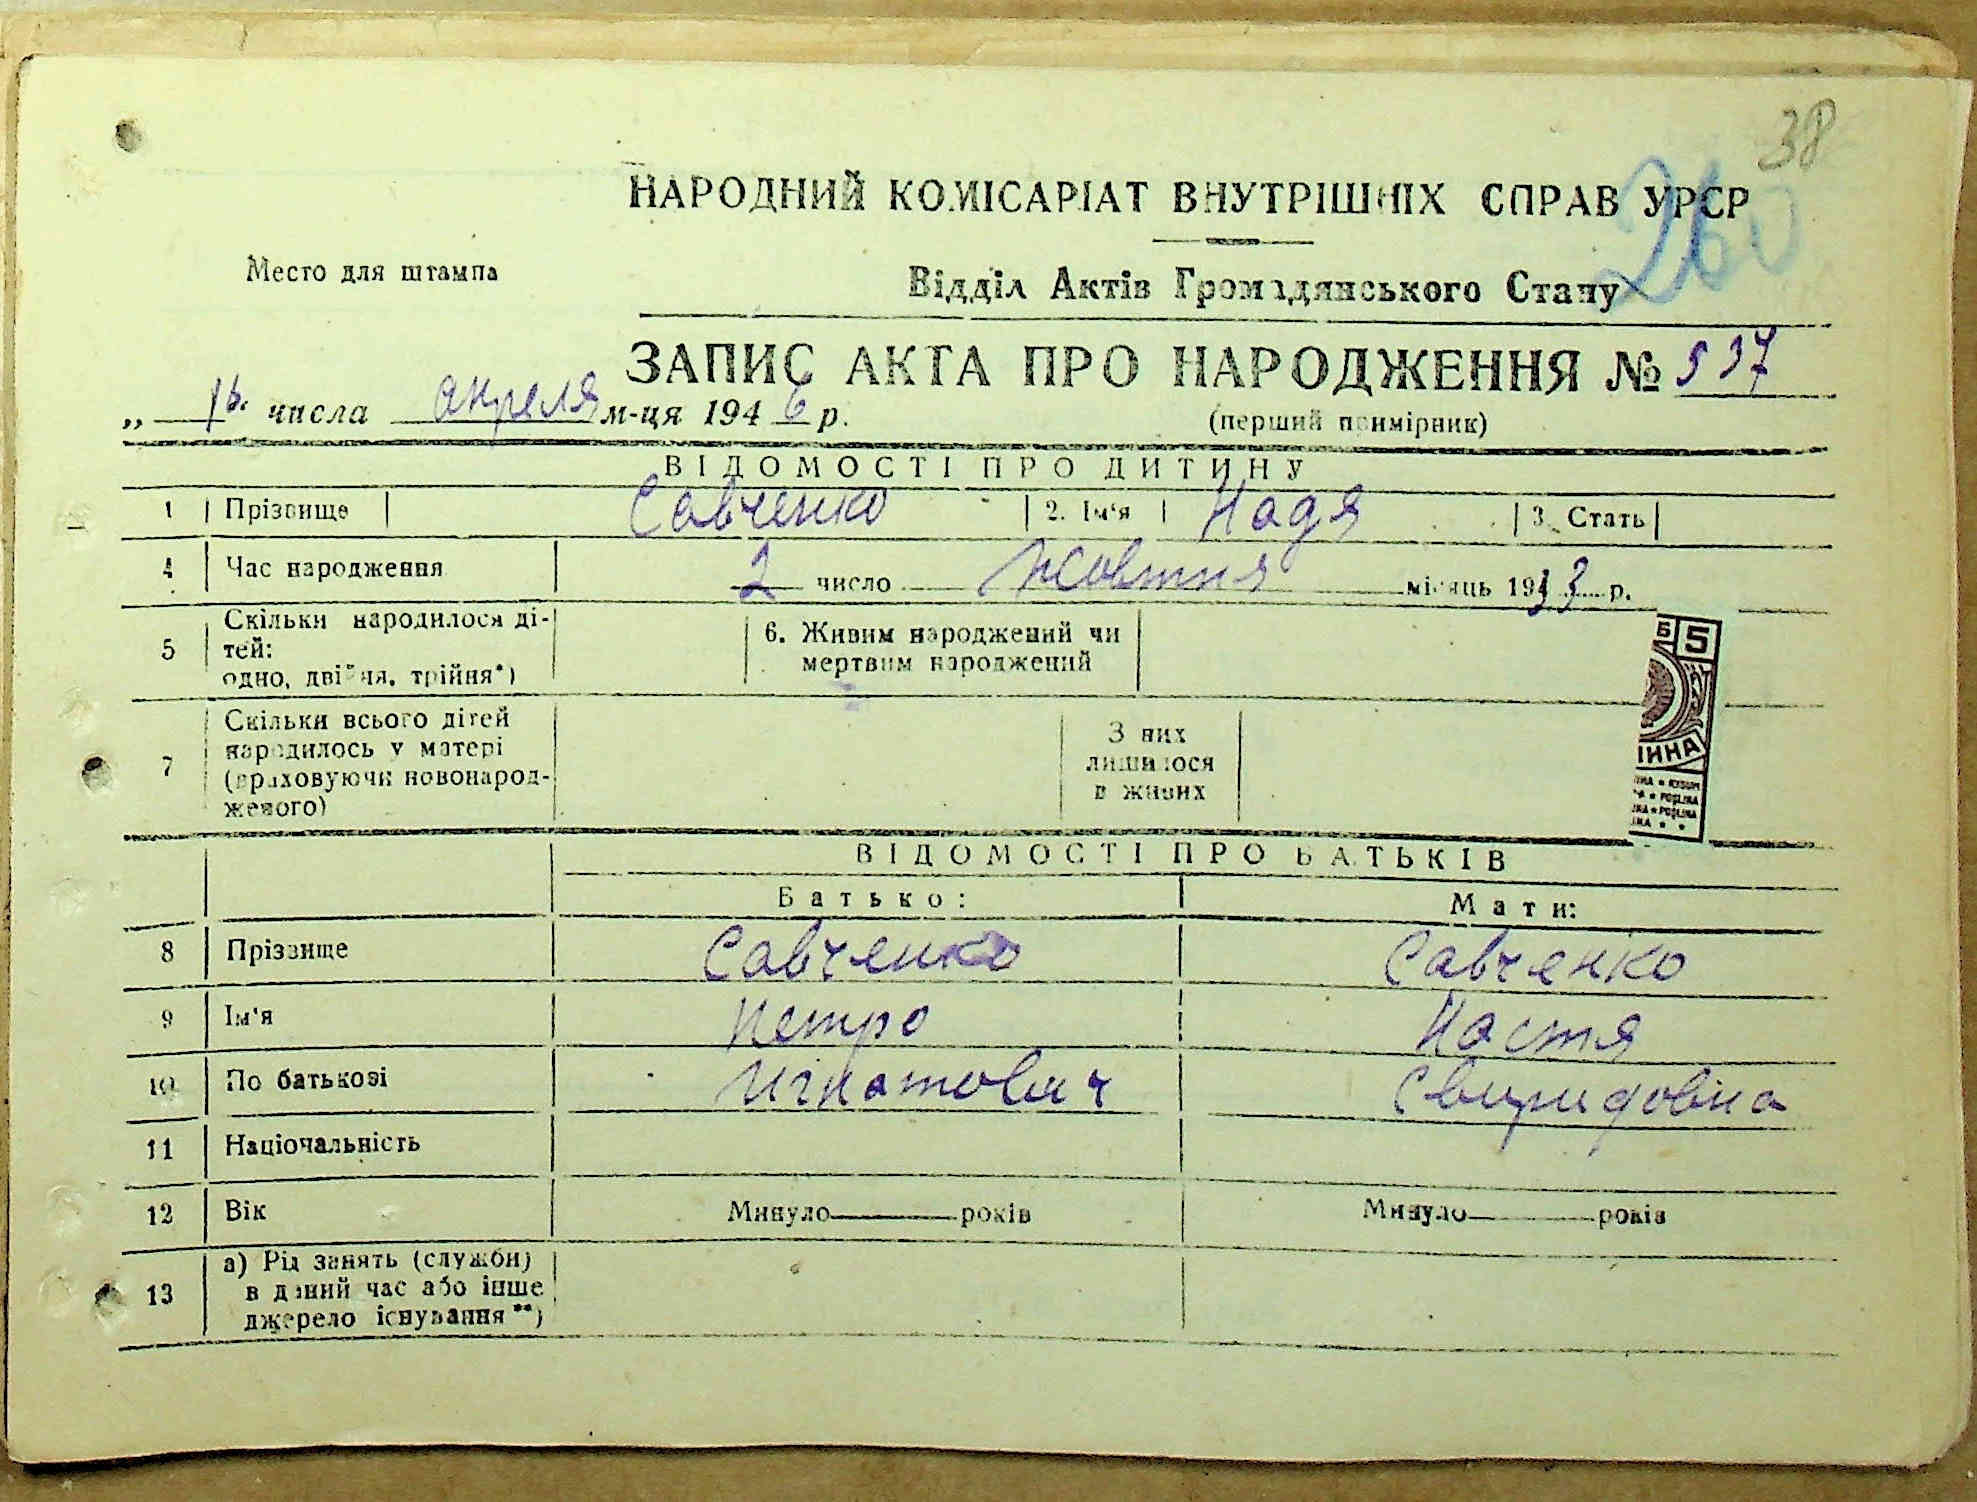 38
260
НАРОДНИЙ КОМІСАРІАТ ВНУТРІШНІХ СПРАВ УРСР
Место для штампа
Відділ Актів Громадянського Стану
ЗАПИС АКТА ПРО НАРОДЖЕННЯ № 537
„ 16. числа апреля м-ця 1946 р.
(перший примірник)
ВІДОМОСТІ ПРО ДИТИНУ
1 Прізвище Савченко 2. Ім'я Надя 3. Стать
4 Час народження 2 число Жовтня місяць 1933 р.
5 Скільки народилося ді-
тей:
одно, двійня, трійня*)
6. Живим народжений чи
мертвим народжений
Б 5
ІННА
7 Скільки всього дітей
народилось у матері
(враховуючи новонарод-
женого)
З них
лишилося
в живих
ВІДОМОСТІ ПРО БАТЬКІВ
Батько: Мати:
8 Прізвище Савченко Савченко
9 Ім'я Петро Настя
10 По батькові Игнатович Свиридовна
11 Національність
12 Вік Минуло років Минуло років
13 а) Рід занять (служби)
в даний час або інше
джерело існування**)